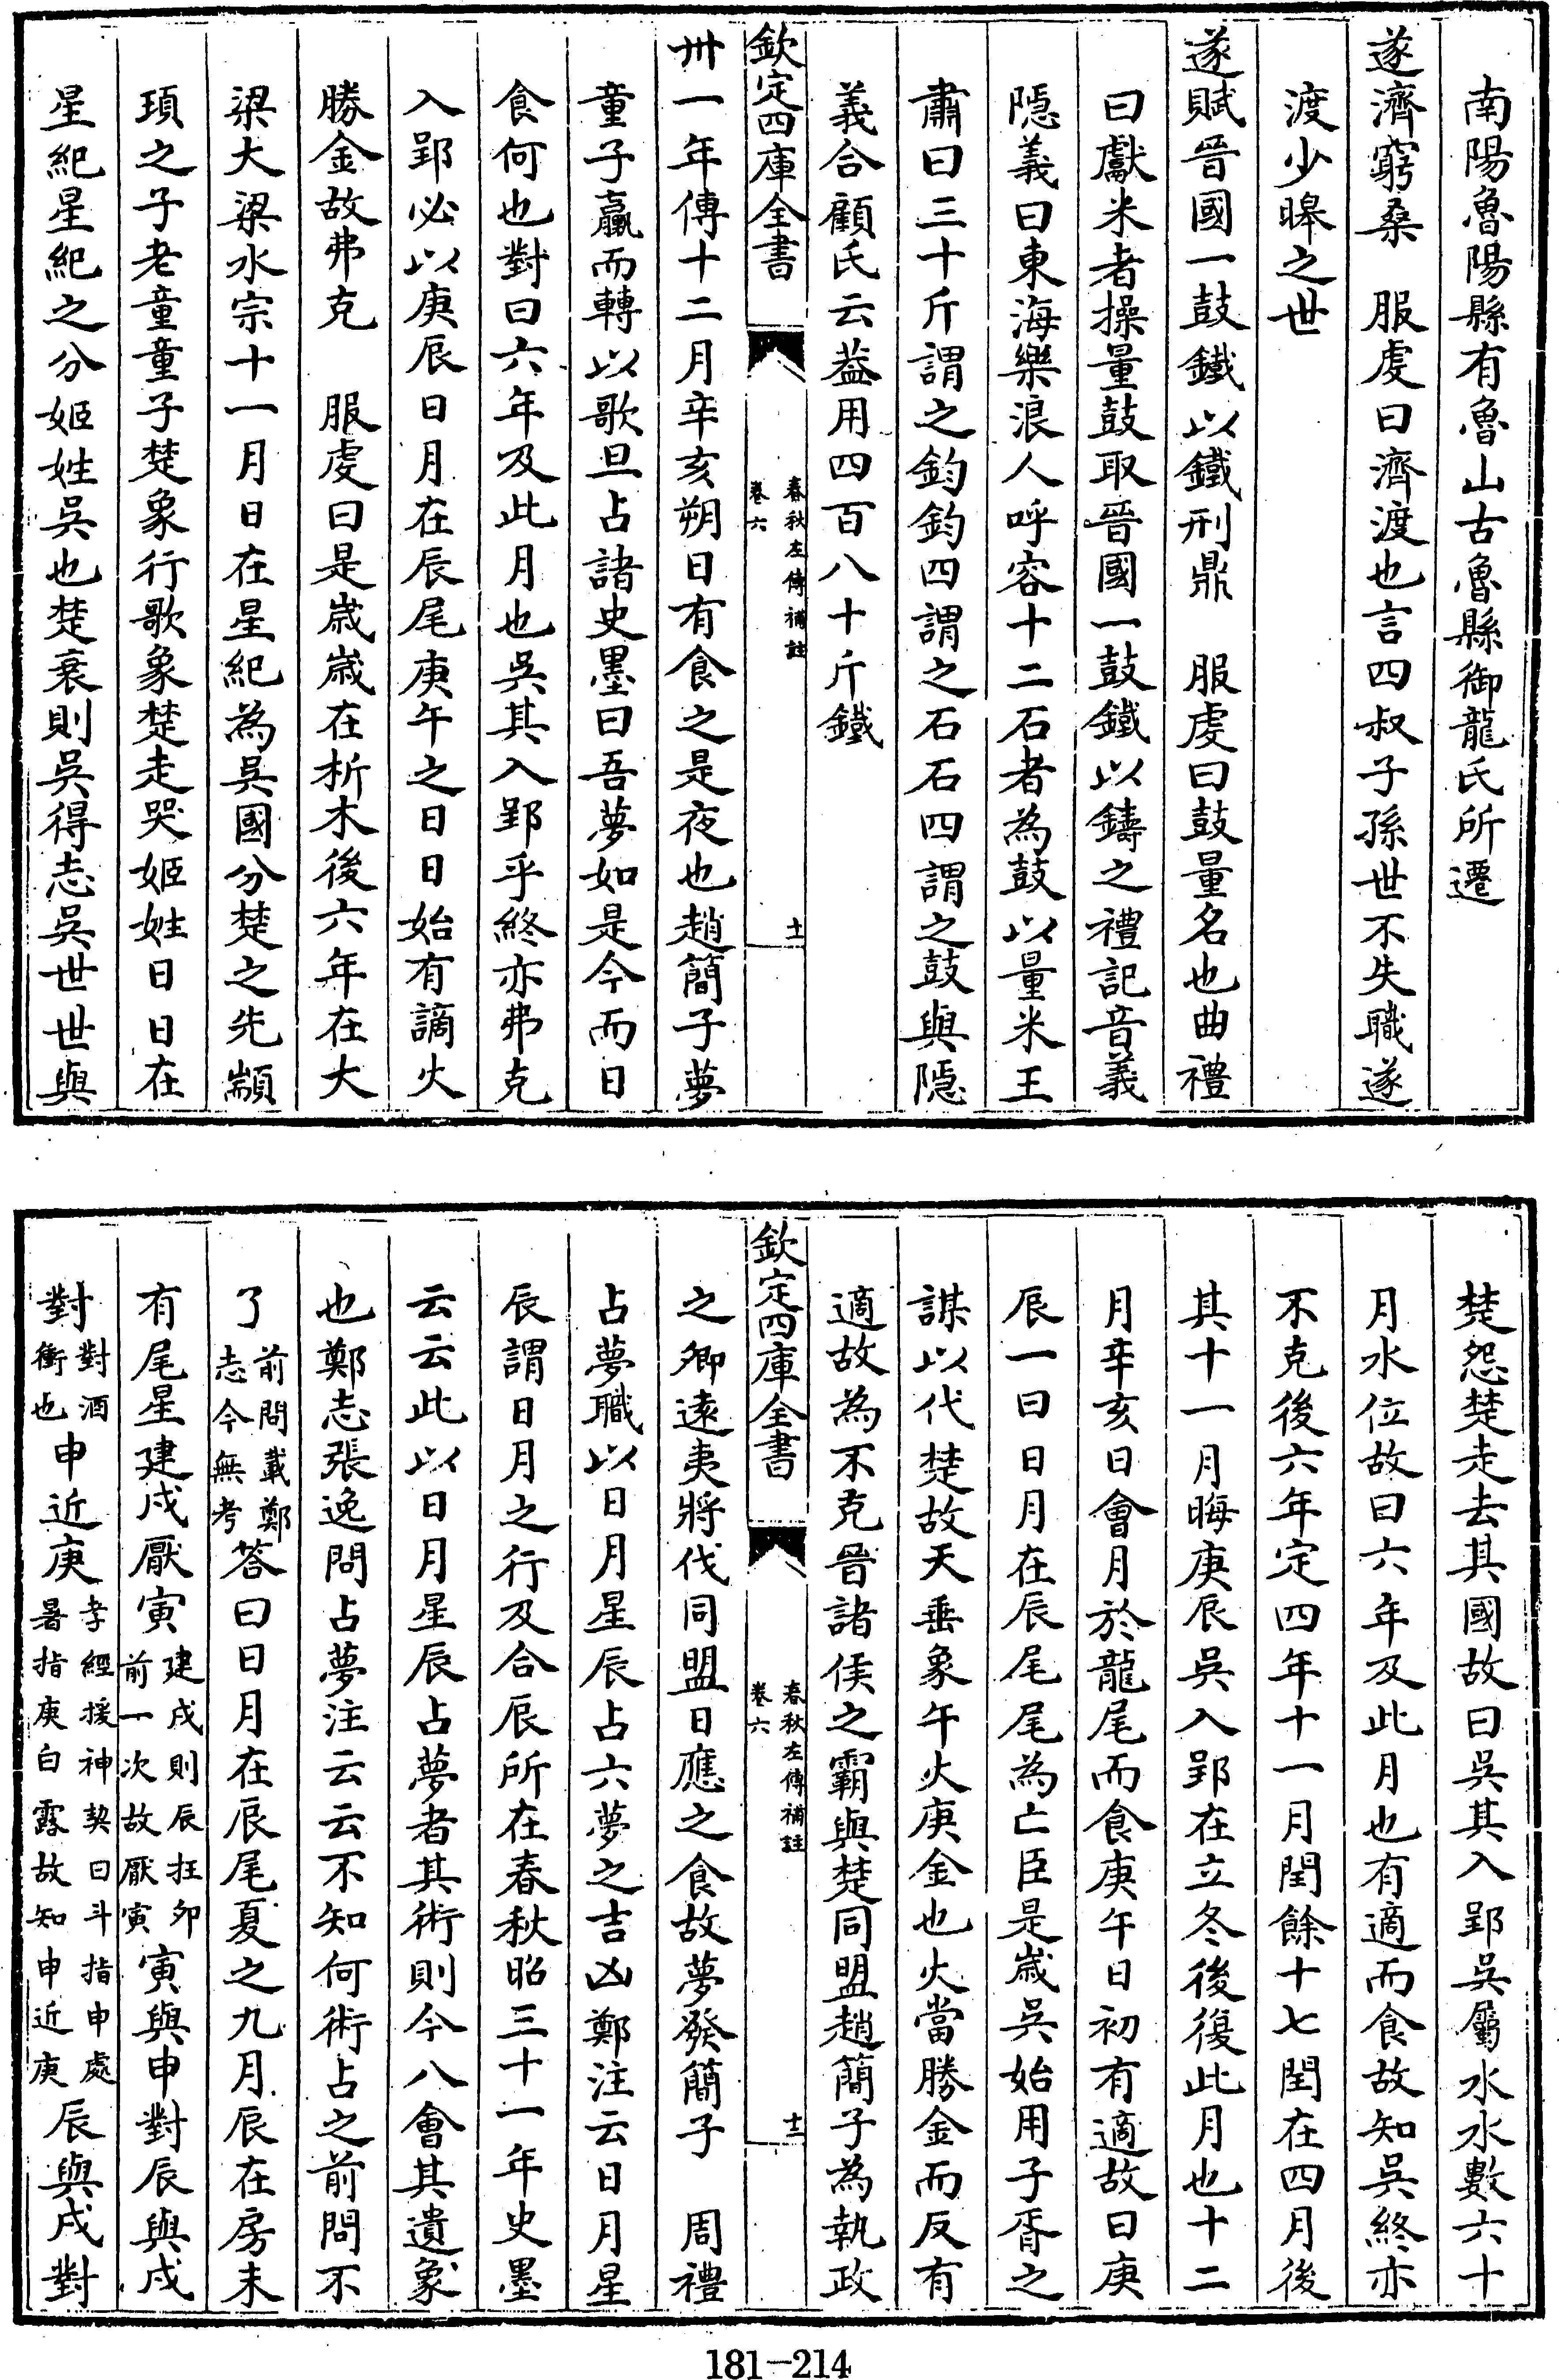 南陽魯陽縣有魯山古魯縣御龍氏所遷
遂濟窮桑　服虔曰濟渡也言四叔子孫世不失職遂
渡少皞之世
遂賦晉國一鼓鐵以鐵刑鼎　服虔曰鼓量名也曲禮
曰獻米者操量鼓取晉國一鼓鐵以鑄之禮記音義
隱義曰東海樂浪人呼容十二石者為鼓以量米王
肅曰三十斤謂之鈞鈞四謂之石石四謂之鼓與隱
義合顧氏云葢用四百八十斤鐵
欽定四庫全書
春秋左傳補註
卷六
十一
卅一年傳十二月辛亥朔日有食之是夜也趙簡子夢
童子羸而轉以歌旦占諸史墨曰吾夢如是今而日
食何也對曰六年及此月也吳其入郢乎終亦弗克
入郢必以庚辰日月在辰尾庚午之日日始有謫火
勝金故弗克　服虔曰是歲歲在析木後六年在大
梁大梁水宗十一月日在星紀為吳國分楚之先顓
頊之子老童童子楚象行歌象楚走哭姬姓日日在
星紀星紀之分姬姓吳也楚衰則吳得志吳世世與
楚怨楚走去其國故曰吳其入郢吳屬水水數六十
月水位故曰六年及此月也有適而食故知吳終亦
不克後六年定四年十一月閏餘十七閏在四月後
其十一月晦庚辰吳入郢在立冬後復此月也十二
月辛亥日會月於龍尾而食庚午日初有適故曰庚
辰一曰日月在辰尾尾為亡臣是歲吳始用子胥之
謀以代楚故天垂象午火庚金也火當勝金而反有
適故為不克晉諸侯之霸與楚同盟趙簡子為執政
欽定四庫全書
春秋左傳補註
卷六
十二
之卿遠夷將伐同盟日應之食故夢發簡子　周禮
占夢職以日月星辰占六夢之吉凶鄭注云日月星
辰謂日月之行及合辰所在春秋昭三十一年史墨
云云此以日月星辰占夢者其術則今八會其遺象
也鄭志張逸問占夢注云云不知何術占之前問不
了前問載鄭志今無考答曰日月在辰尾夏之九月辰在房末
有尾星建戌厭寅建戌則辰在卯前一次故厭寅寅與申對辰與戌
對對酒衝也申近庚孝經援神契曰斗指申處暑指庚白露故知申近庚辰與戌對
181-214